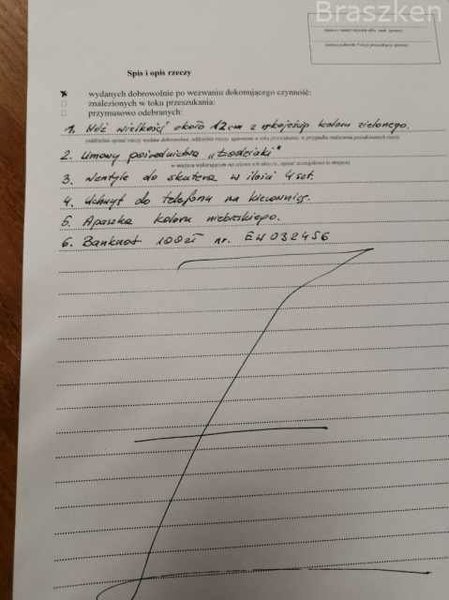 Braszken
Spis i opis rzeczy
wydanych dobrowolnie po wezwaniu dokonującego czynność:
znalezionych w toku przeszukania:
przymusowo odebranych:
1. Nóż wielkość około 12cm z rękojeścią koloru zielonego.
2. Umowy pośrednictwa „Łodziaki"
3. Wentyle do skutera w ilości 4 szt.
4. Uchwyt do telefonu na kierownicę.
5. Apaszka koloru niebieskiego.
6. Banknot 100zł nr. EW032456